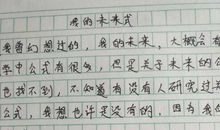 我的未来式
我曾幻想过的，我的未来，大概会有
学中公式有很多，但是关于未来的公式
也找不到，不知道有没有人研究过关
公式，我想也许是没有的，因为我